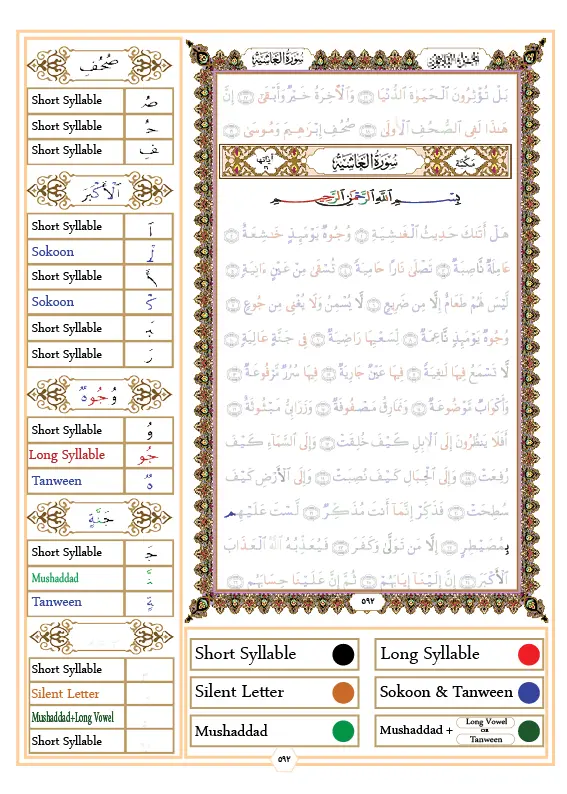 صُحُفِ
Short Syllable صُ
Short Syllable حُ
Short Syllable فِ
ٱلْأَكْبَرَ
Short Syllable
Sokoon
Short Syllable أَ
Sokoon كْ
Short Syllable بَ
Short Syllable رَ
وُجُوهٌ
Short Syllable وُ
Long Syllable جُو
Tanween هٌ
جَنَّةٍ
Short Syllable جَ
Mushaddad نَّ
Tanween ةٍ
Short Syllable
Silent Letter
Mushaddad+Long Vowel
Short Syllable
سُورَةُ الغَاشِيَة
بَلْ تُؤْثِرُونَ ٱلْحَيَوٰةَ ٱلدُّنْيَا وَٱلْآخِرَةُ خَيْرٌ وَأَبْقَىٰٓ إِنَّ
هَٰذَا لَفِى ٱلصُّحُفِ ٱلْأُولَىٰ صُحُفِ إِبْرَٰهِيمَ وَمُوسَىٰ
مَكِّيَّة سُورَةُ الغَاشِيَة آيَاتُهَا
بِسْمِ ٱللَّهِ ٱلرَّحْمَٰنِ ٱلرَّحِيمِ
هَلْ أَتَىٰكَ حَدِيثُ ٱلْغَٰشِيَةِ وُجُوهٌ يَوْمَئِذٍ خَٰشِعَةٌ
عَامِلَةٌ نَّاصِبَةٌ تَصْلَىٰ نَارًا حَامِيَةً تُسْقَىٰ مِنْ عَيْنٍ ءَانِيَةٍ
لَّيْسَ لَهُمْ طَعَامٌ إِلَّا مِن ضَرِيعٍ لَّا يُسْمِنُ وَلَا يُغْنِى مِن جُوعٍ
وُجُوهٌ يَوْمَئِذٍ نَّاعِمَةٌ لِّسَعْيِهَا رَاضِيَةٌ فِى جَنَّةٍ عَالِيَةٍ
لَّا تَسْمَعُ فِيهَا لَٰغِيَةً فِيهَا عَيْنٌ جَارِيَةٌ فِيهَا سُرُرٌ مَّرْفُوعَةٌ
وَأَكْوَابٌ مَّوْضُوعَةٌ وَنَمَارِقُ مَصْفُوفَةٌ وَزَرَابِىُّ مَبْثُوثَةٌ
أَفَلَا يَنظُرُونَ إِلَى ٱلْإِبِلِ كَيْفَ خُلِقَتْ وَإِلَى ٱلسَّمَآءِ كَيْفَ
رُفِعَتْ وَإِلَى ٱلْجِبَالِ كَيْفَ نُصِبَتْ وَإِلَى ٱلْأَرْضِ كَيْفَ
سُطِحَتْ فَذَكِّرْ إِنَّمَآ أَنتَ مُذَكِّرٌ لَّسْتَ عَلَيْهِم
بِمُصَيْطِرٍ إِلَّا مَن تَوَلَّىٰ وَكَفَرَ فَيُعَذِّبُهُ ٱللَّهُ ٱلْعَذَابَ
ٱلْأَكْبَرَ إِنَّ إِلَيْنَآ إِيَابَهُمْ ثُمَّ إِنَّ عَلَيْنَا حِسَابَهُم
٥٩٢
Short Syllable
Long Syllable
Silent Letter
Sokoon & Tanween
Mushaddad
Mushaddad + Long Vowel OR Tanween
٥٩٢